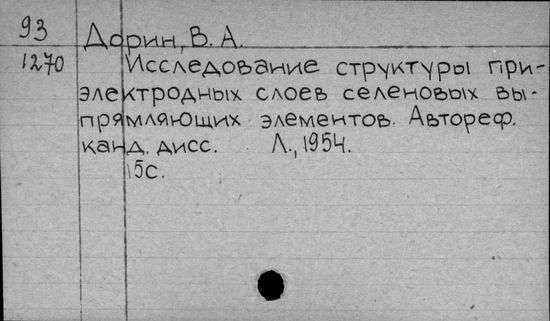 93
Дорин, В. А.
1270
Исследование структуры при-
электродных слоев селеновых вы-
прямляющих элементов. Автореф.
канд. дисс. Л., 1954.
15с.